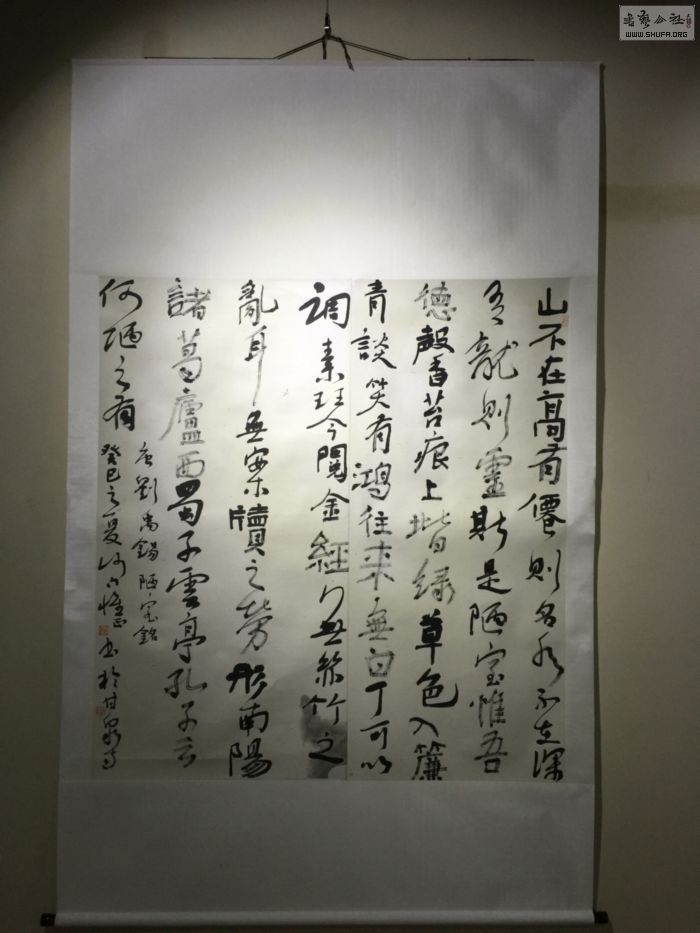 山不在高有僊則名水不在深
有龍則靈斯是陋室惟吾
德馨苔痕上階緑草色入簾
青談笑有鴻往来無白丁可以
調素琴閱金經無絲竹之
亂耳無案牘之勞形南陽
諸葛廬西蜀子雲亭孔子云
何陋之有
唐劉禹錫陋室銘
癸巳之夏 書於甘泉
书艺公社
WWW.SHUFA.ORG